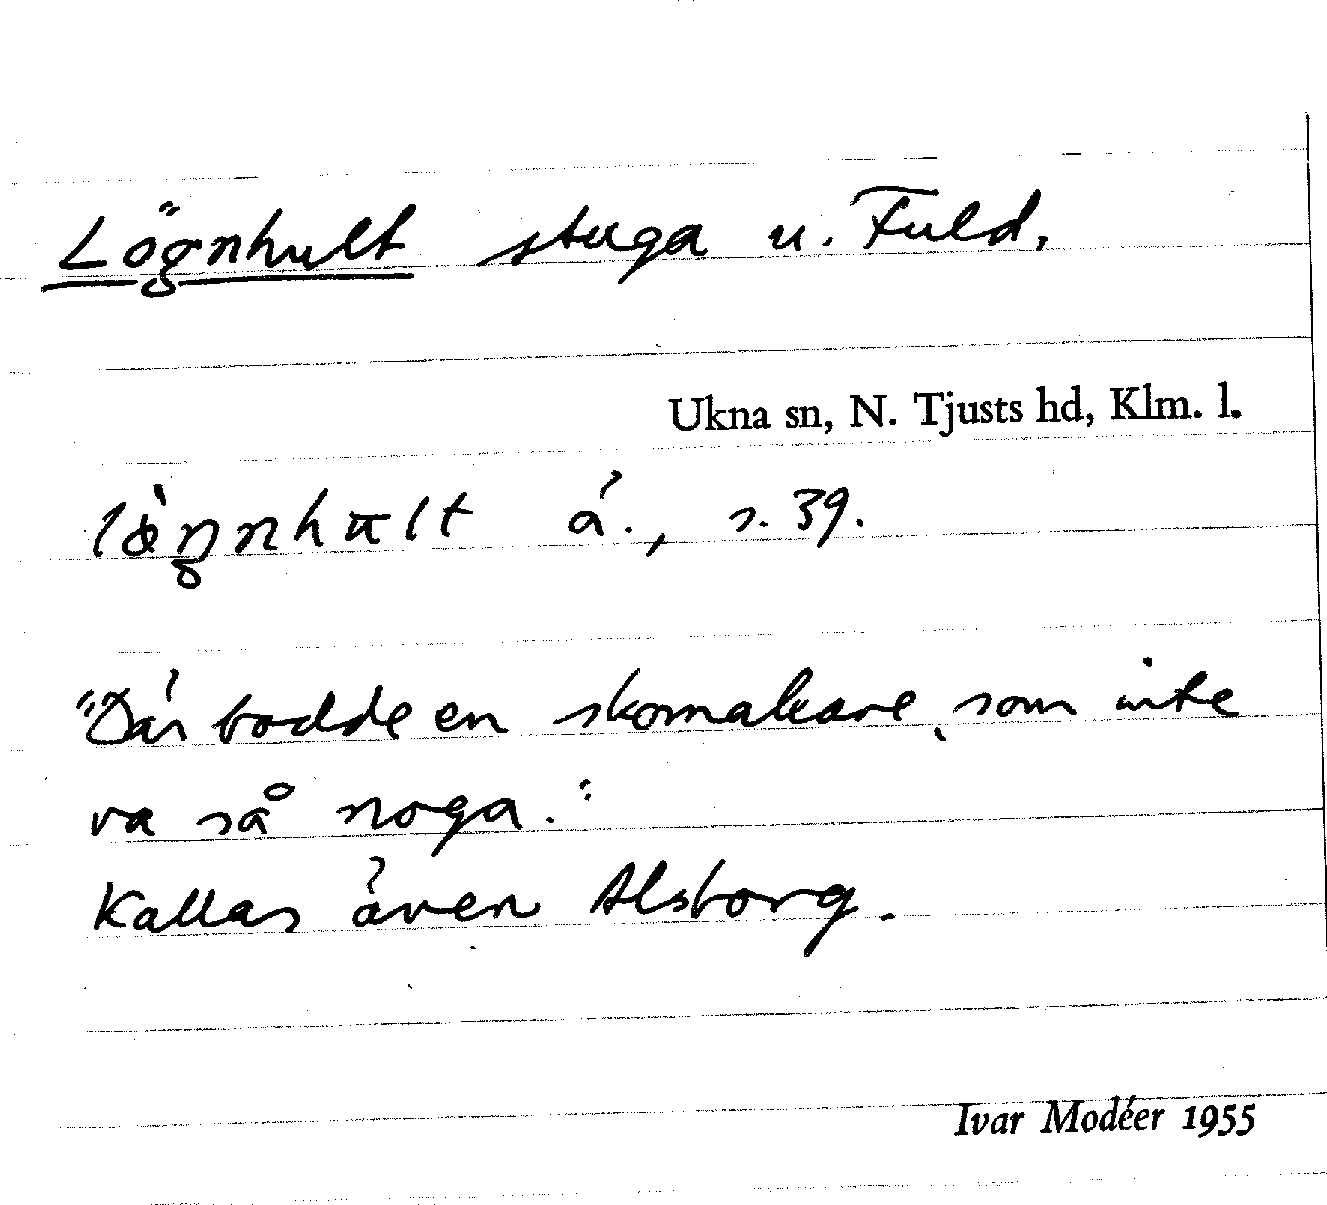 Lögnhult stuga u. Fuld.
Ukna sn, N. Tjusts hd, Klm. l.
á., s. 39.
"Där bodde en skomakare, som inte
va så noga."
Kallas även Alsborg.
Ivar Modéer 1955